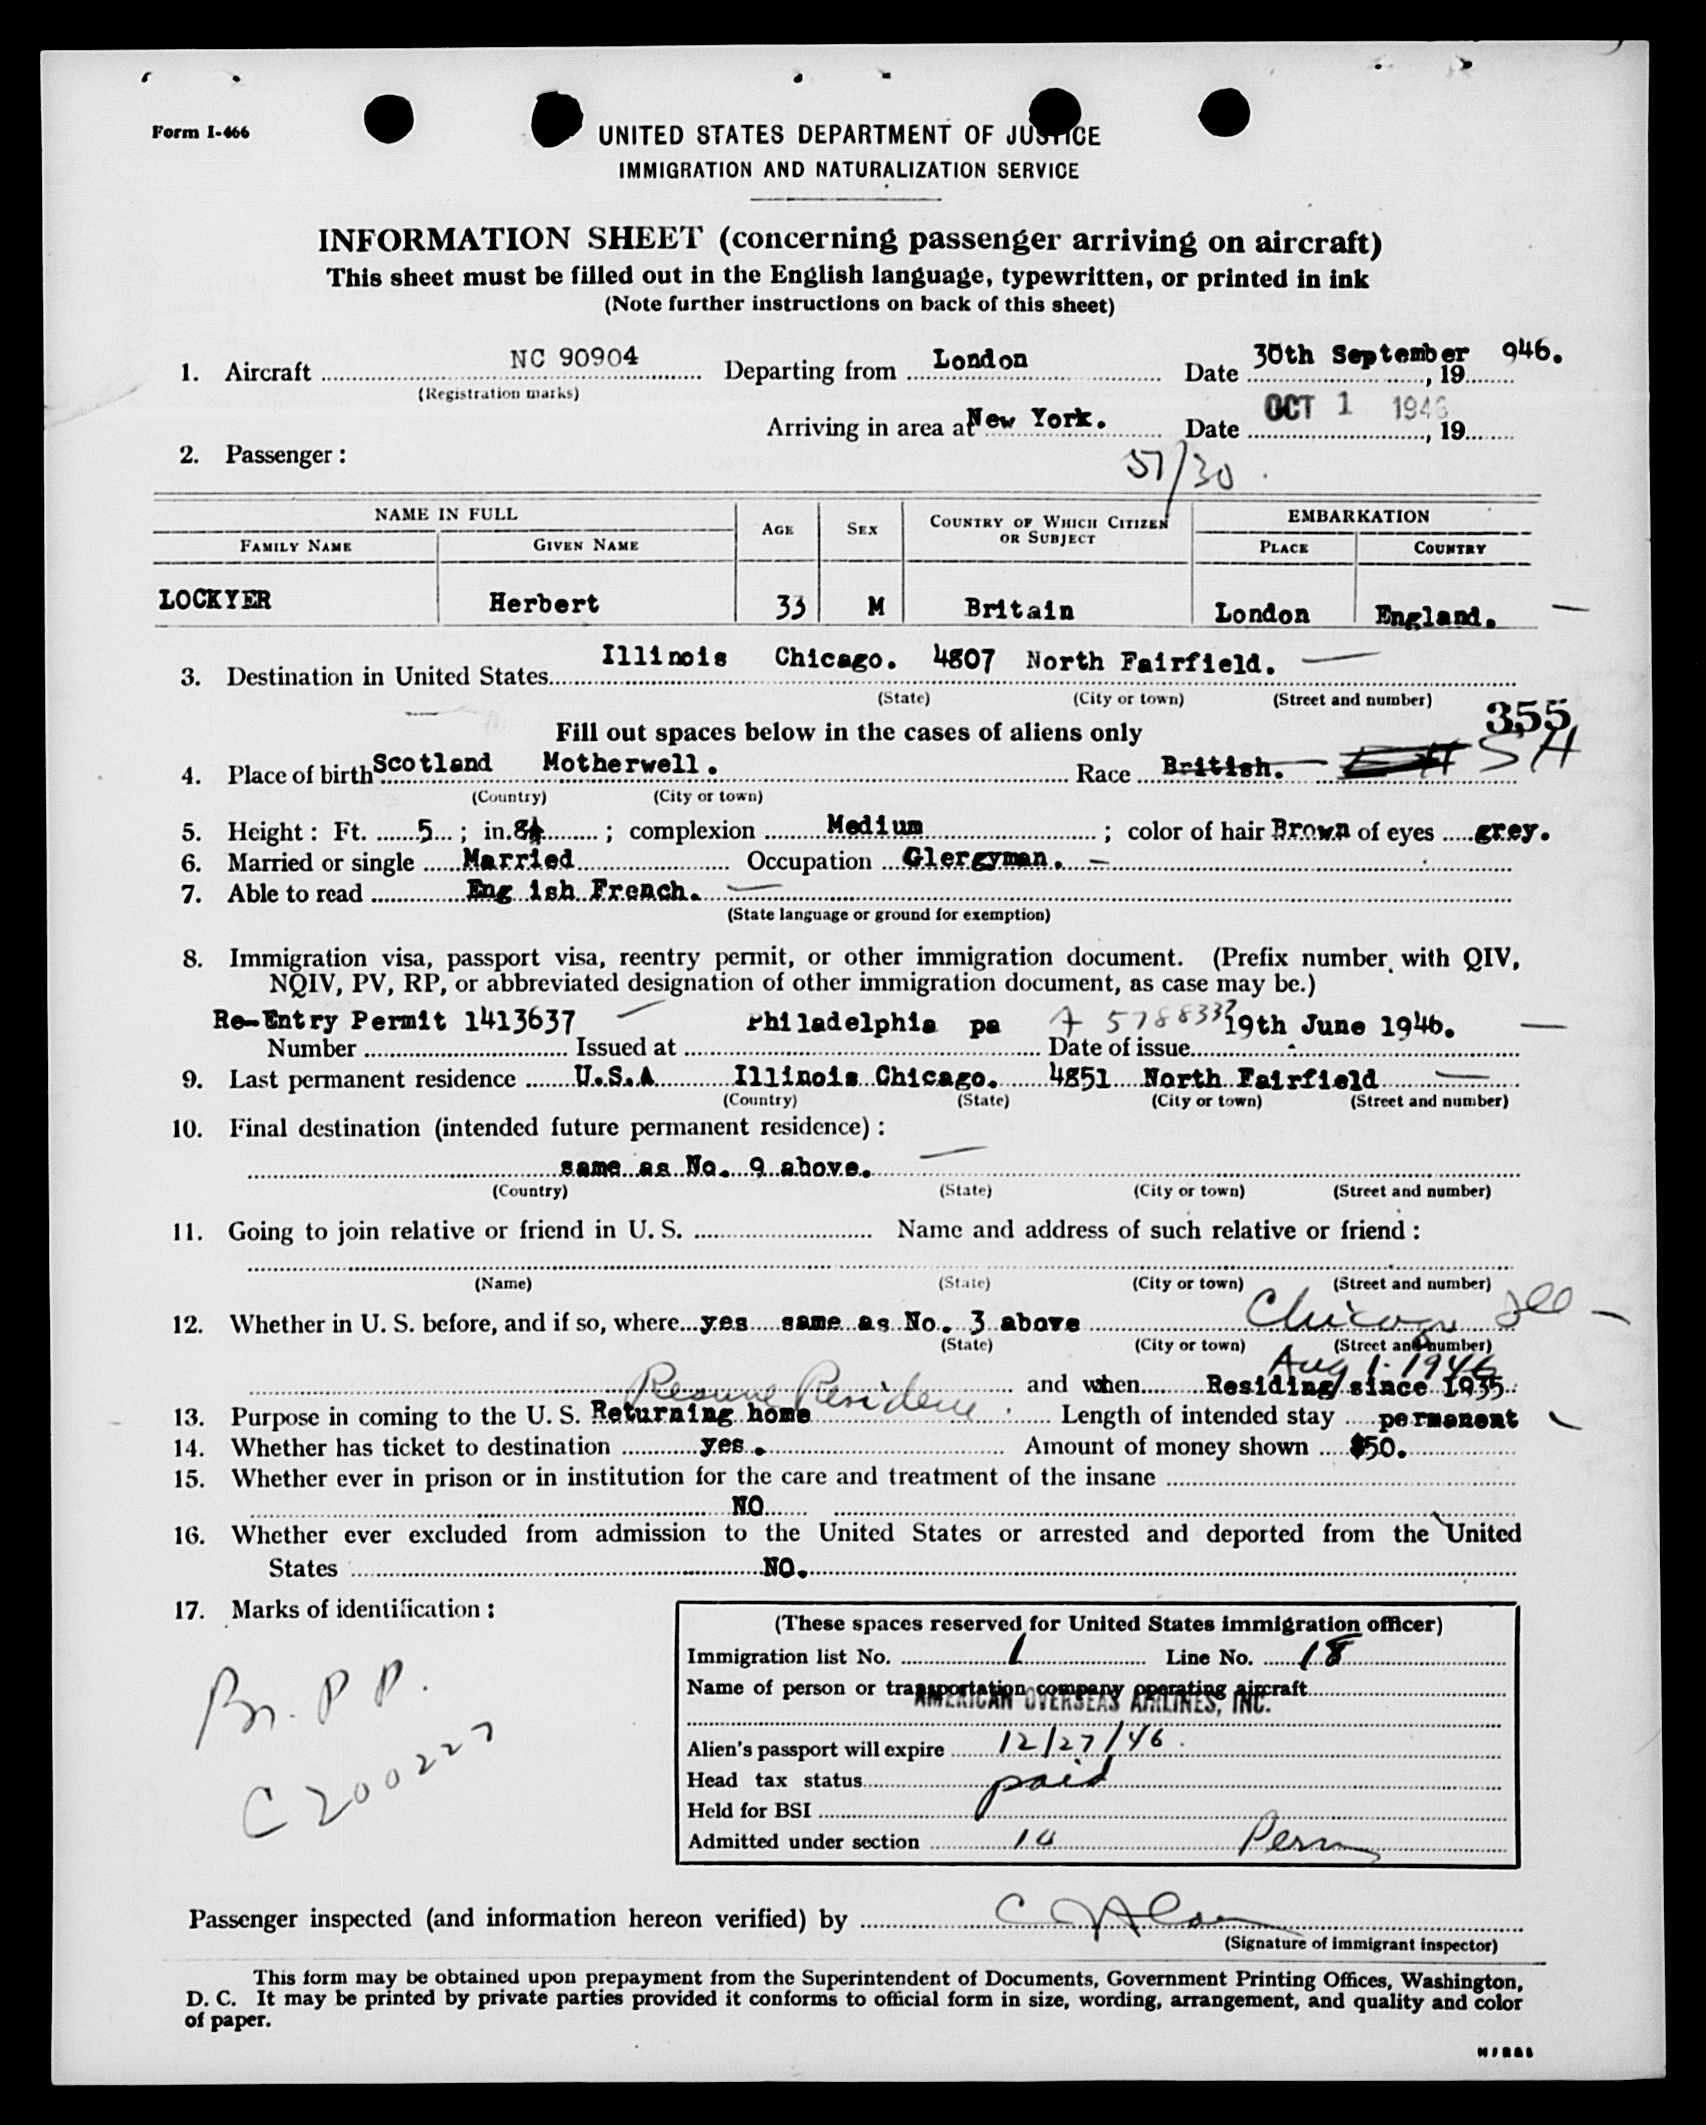 Form I-466
UNITED STATES DEPARTMENT OF JUSTICE
IMMIGRATION AND NATURALIZATION SERVICE
INFORMATION SHEET (concerning passenger arriving on aircraft)
This sheet must be filled out in the English language, typewritten, or printed in ink
(Note further instructions on back of this sheet)
1. Aircraft NC 90904 Departing from London Date 30th September, 19 946.
(Registration marks)
Arriving in area at New York. Date OCT 1 1946, 19
2. Passenger:
51/30
NAME IN FULL AGE SEX COUNTRY OF WHICH CITIZEN OR SUBJECT EMBARKATION
FAMILY NAME GIVEN NAME PLACE COUNTRY
LOCKYER Herbert 33 M Britain London England.
3. Destination in United States Illinois Chicago. 4807 North Fairfield.
(State) (City or town) (Street and number)
355
Fill out spaces below in the cases of aliens only
4. Place of birth Scotland Motherwell. Race British. SH
(Country) (City or town)
5. Height: Ft. 5; in. 8; complexion Medium; color of hair Brown of eyes grey.
6. Married or single Married Occupation Clergyman.
7. Able to read Eng ish French.
(State language or ground for exemption)
8. Immigration visa, passport visa, reentry permit, or other immigration document. (Prefix number with QIV,
NQIV, PV, RP, or abbreviated designation of other immigration document, as case may be.)
Re-Entry Permit 1413637 Philadelphia pa 19th June 1946.
Number Issued at Date of issue
9. Last permanent residence U.S.A Illinois Chicago. 4851 North Fairfield
(Country) (State) (City or town) (Street and number)
10. Final destination (intended future permanent residence):
same as No. 9 above.
(Country) (State) (City or town) (Street and number)
11. Going to join relative or friend in U. S. Name and address of such relative or friend:
(Name) (State) (City or town) (Street and number)
12. Whether in U. S. before, and if so, where yes same as No. 3 above Chicago Ill
(State) (City or town) (Street and number)
Aug 1. 1946
and when Residing since 1935
Resume Residence
13. Purpose in coming to the U. S. Returning home Length of intended stay permanent
14. Whether has ticket to destination yes. Amount of money shown $50.
15. Whether ever in prison or in institution for the care and treatment of the insane
NO
16. Whether ever excluded from admission to the United States or arrested and deported from the United
States NO.
17. Marks of identification:
Br. P P.
C 200227
(These spaces reserved for United States immigration officer)
Immigration list No. 1 Line No. 18
Name of person or transportation company operating aircraft
AMERICAN OVERSEAS AIRLINES, INC.
Alien's passport will expire 12/27/46.
Head tax status paid
Held for BSI
Admitted under section Perm
Passenger inspected (and information hereon verified) by
(Signature of immigrant inspector)
This form may be obtained upon prepayment from the Superintendent of Documents, Government Printing Offices, Washington,
D. C. It may be printed by private parties provided it conforms to official form in size, wording, arrangement, and quality and color
of paper.